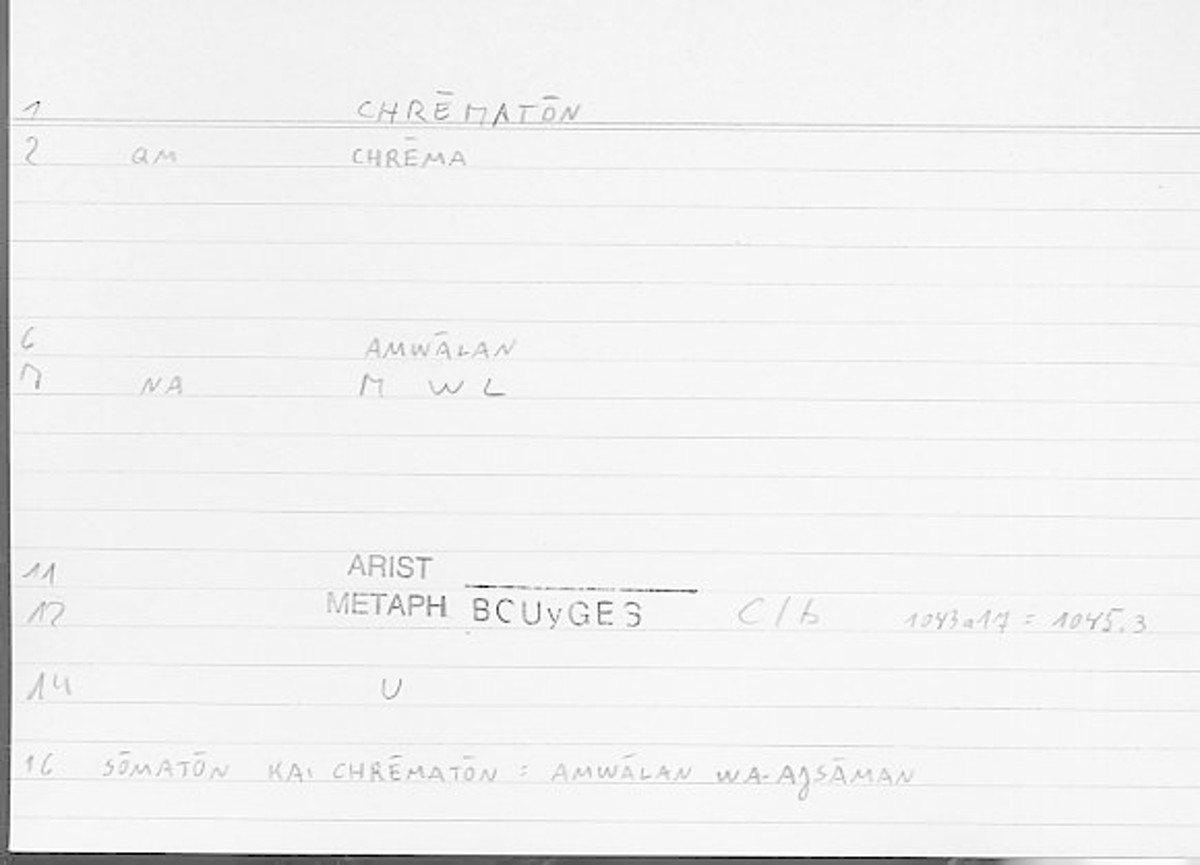 1 CHRĒMATŌN
2 QM CHRĒMA
6 AMWĀLAN
7 NA M W L
11 ARIST
12 METAPH BCUyGES C/b 1043a17 = 1045.3
14 U
16 SŌMATŌN KAI CHRĒMATŌN = AMWĀLAN WA-AJSĀMAN